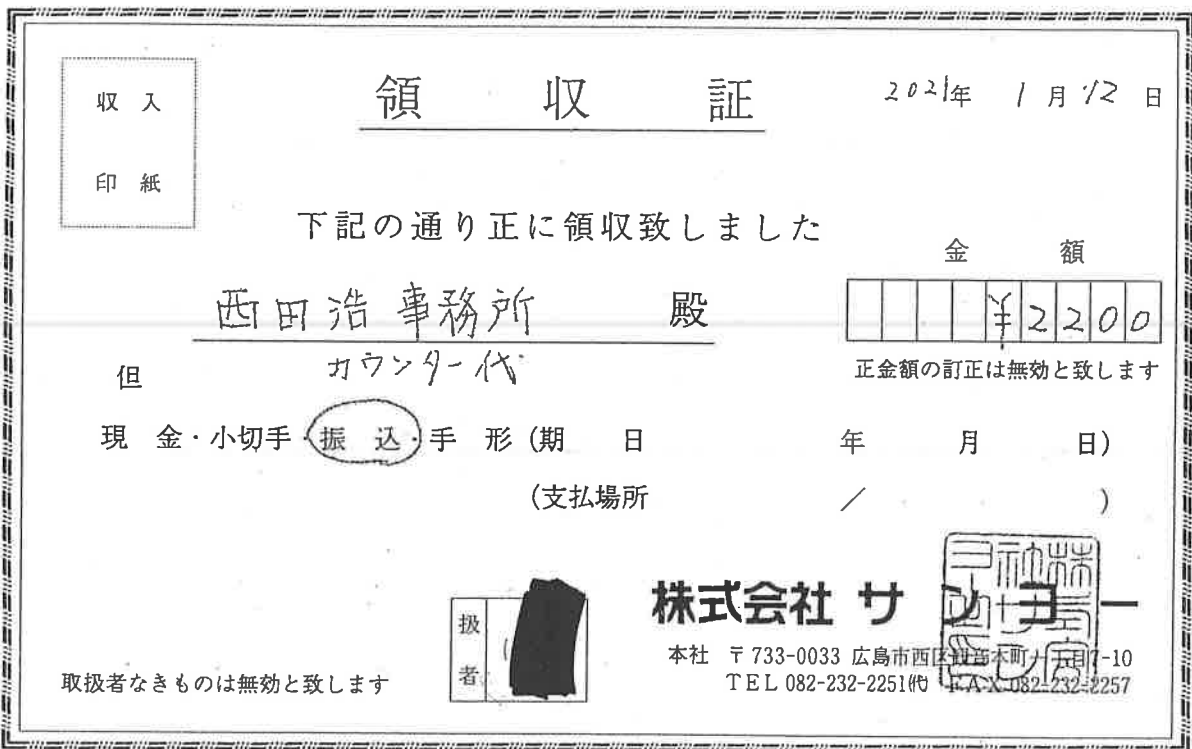 収入
印紙
領収証
2021年 1月12日
下記の通り正に領収致しました
金額
西田浩事務所 殿
¥2200
正金額の訂正は無効と致します
但 カウンター代
現金・小切手・振込・手形(期日 年 月 日)
(支払場所 / )
株式会社サンヨー
扱者
本社 〒733-0033 広島市西区観音本町一丁目7-10
TEL 082-232-2251㈹ FAX 082-232-2257
取扱者なきものは無効と致します